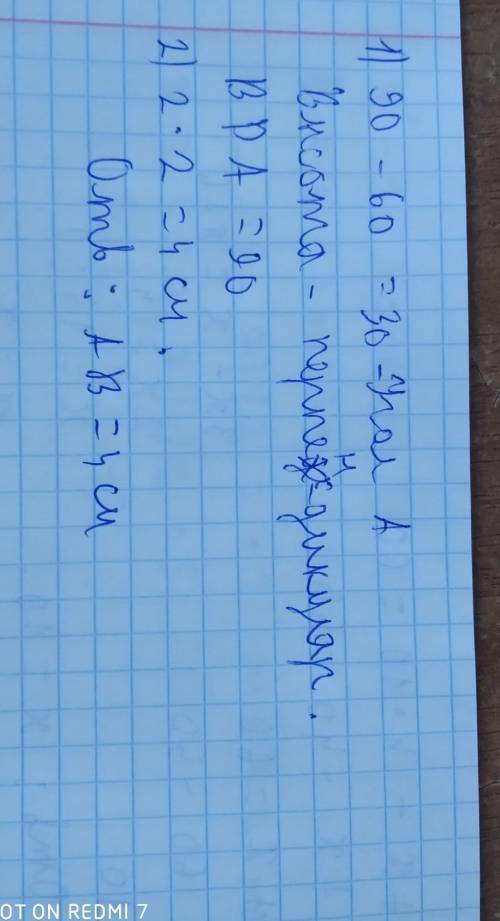 1) 90 - 60 = 30 = Угол А
Высота - перпендикуляр.
В D А = 90
2) 2 · 2 = 4 см.
Отв: АВ = 4 см
OT ON REDMI 7